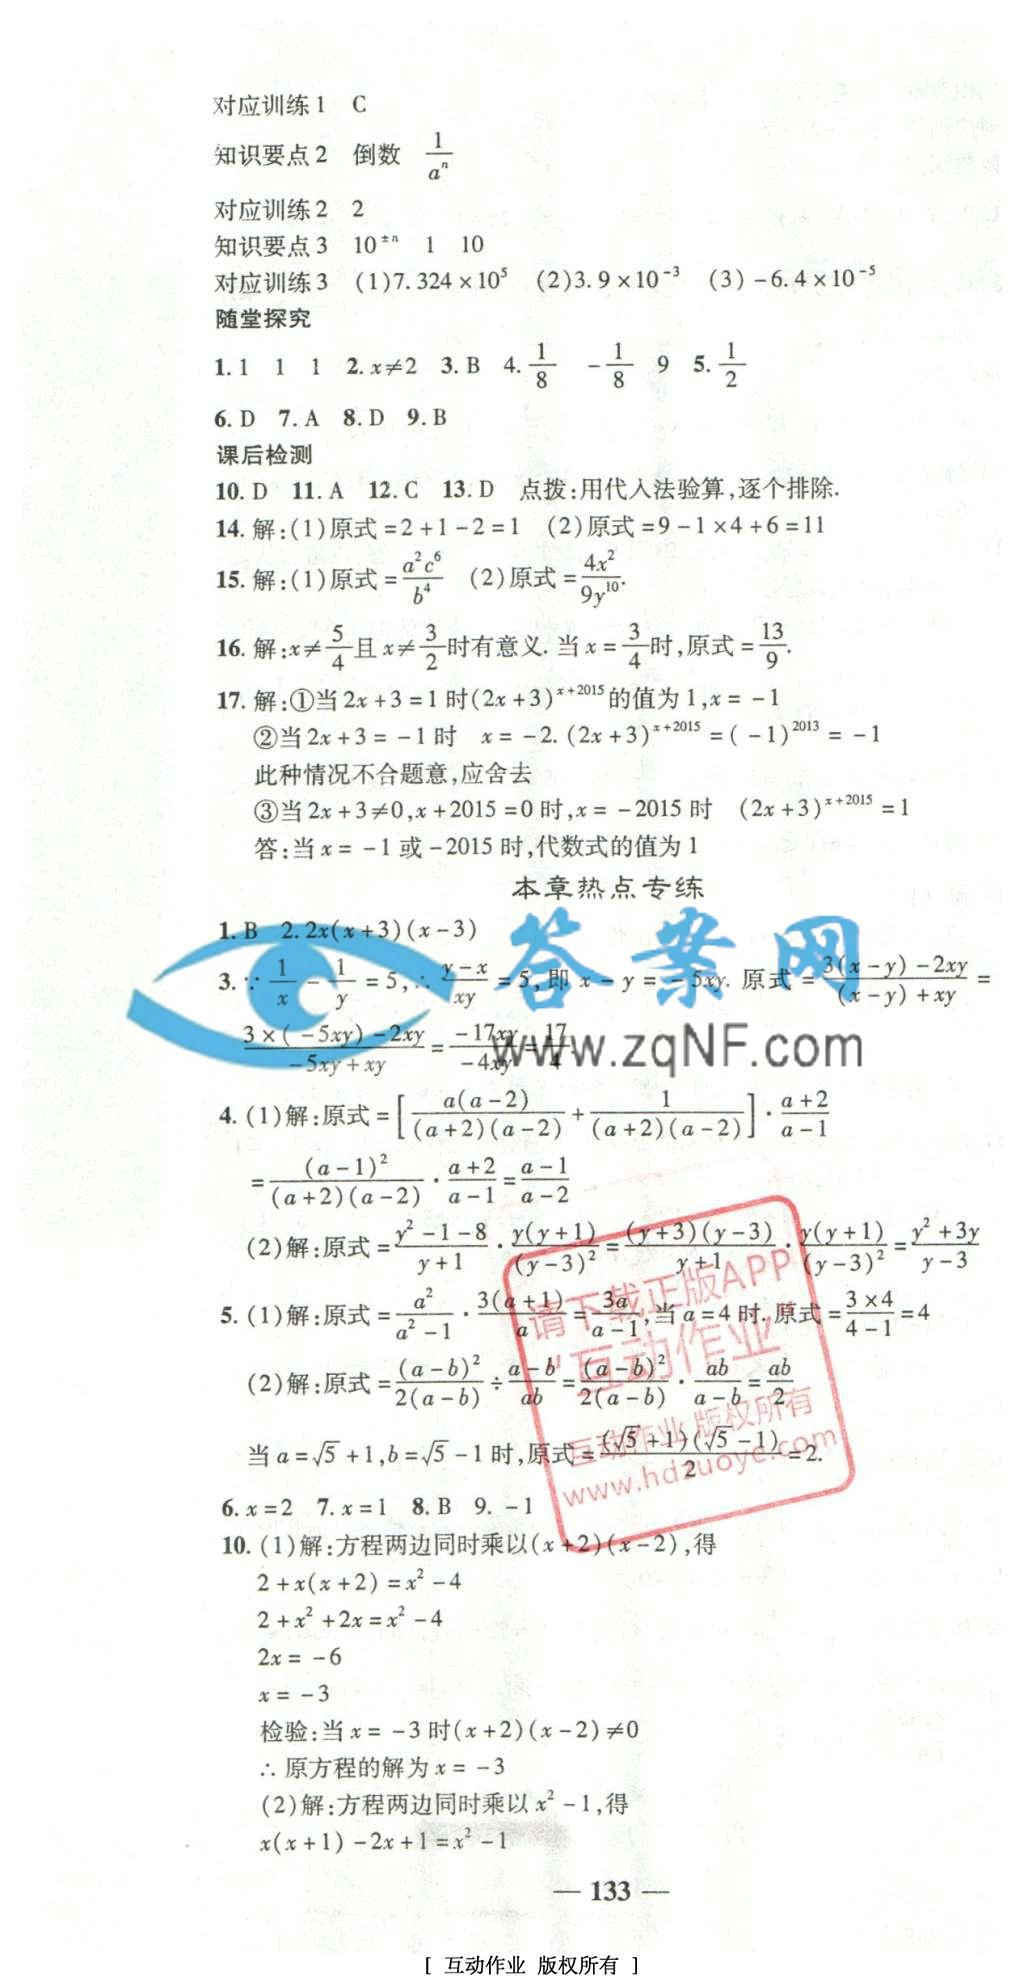 对应训练1 C
知识要点2 倒数 1/aⁿ
对应训练2 2
知识要点3 10^{±n} 1 10
对应训练3 (1)7.324×10⁵ (2)3.9×10⁻³ (3)-6.4×10⁻⁵
随堂探究
1.1 1 1 2.x≠2 3.B 4.1/8 -1/8 9 5.1/2
6.D 7.A 8.D 9.B
课后检测
10.D 11.A 12.C 13.D 点拨:用代入法验算,逐个排除.
14.解:(1)原式=2+1-2=1 (2)原式=9-1×4+6=11
15.解:(1)原式=a²c⁶/b⁴ (2)原式=4x²/9y¹⁰.
16.解:x≠5/4且x≠3/2时有意义.当x=3/4时,原式=13/9.
17.解:①当2x+3=1时(2x+3)^{x+2015}的值为1,x=-1
②当2x+3=-1时 x=-2.(2x+3)^{x+2015}=(-1)^{2013}=-1
此种情况不合题意,应舍去
③当2x+3≠0,x+2015=0时,x=-2015时 (2x+3)^{x+2015}=1
答:当x=-1或-2015时,代数式的值为1
本章热点专练
1.B 2.2x(x+3)(x-3)
3.∵1/x-1/y=5,∴(y-x)/xy=5,即x-y=-5xy.原式=[3(x-y)-2xy]/[(x-y)+xy]=
[3×(-5xy)-2xy]/(-5xy+xy)=-17xy/-4xy=17/4
答案网
www.zqNF.com
4.(1)解:原式=[a(a-2)/(a+2)(a-2)+1/(a+2)(a-2)]·(a+2)/(a-1)
=(a-1)²/(a+2)(a-2)·(a+2)/(a-1)=(a-1)/(a-2)
(2)解:原式=(y²-1-8)/(y+1)·y(y+1)/(y-3)²=(y+3)(y-3)/(y+1)·y(y+1)/(y-3)²=(y²+3y)/(y-3)
5.(1)解:原式=a²/(a²-1)·3(a+1)/a=3a/(a-1),当a=4时.原式=(3×4)/(4-1)=4
(2)解:原式=(a-b)²/2(a-b)÷(a-b)/ab=(a-b)²/2(a-b)·ab/(a-b)=ab/2
当a=√5+1,b=√5-1时,原式=(√5+1)(√5-1)/2=2.
请下载正版APP
“互动作业”
互动作业 版权所有
www.hdzuoye.com
6.x=2 7.x=1 8.B 9.-1
10.(1)解:方程两边同时乘以(x+2)(x-2),得
2+x(x+2)=x²-4
2+x²+2x=x²-4
2x=-6
x=-3
检验:当x=-3时(x+2)(x-2)≠0
∴原方程的解为x=-3
(2)解:方程两边同时乘以x²-1,得
x(x+1)-2x+1=x²-1
— 133 —
[ 互动作业 版权所有 ]